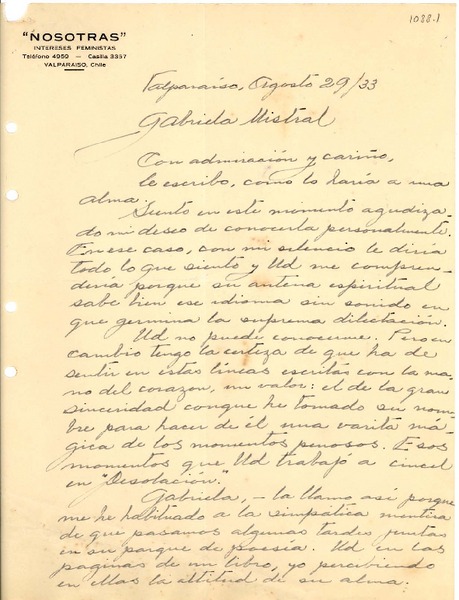 1088.1
"NOSOTRAS"
INTERESES FEMINISTAS
Teléfono 4959 — Casilla 3357
VALPARAISO, Chile
Valparaíso, Agosto 29/33
Gabriela Mistral
Con admiración y cariño,
le escribo, como lo haría a una
alma.
Siento en este momento agudiza-
do mi deseo de conocerla personalmente.
En ese caso, con mi silencio le diría
todo lo que siento y Ud me compren-
dería porque su antena espiritual
sabe bien ese idioma sin sonido en
que germina la suprema dilectación.
Ud no puede conocerme. Pero en
cambio tengo la certeza de que ha de
sentir en estas líneas escritas con la ma-
no del corazon, un valor: el de la gran
sinceridad conque he tomado su nom-
bre para hacer de él una varita má-
gica de los momentos penosos. Esos
momentos que Ud trabajó a cincel
en "Desolación."
Gabriela, - la llamo así porque
me he habituado a la simpática mentira
de que pasamos algunas tardes juntas
en su parque de poesía. Ud en las
paginas de un libro, yo percibiendo
en ellas la actitud de su alma.